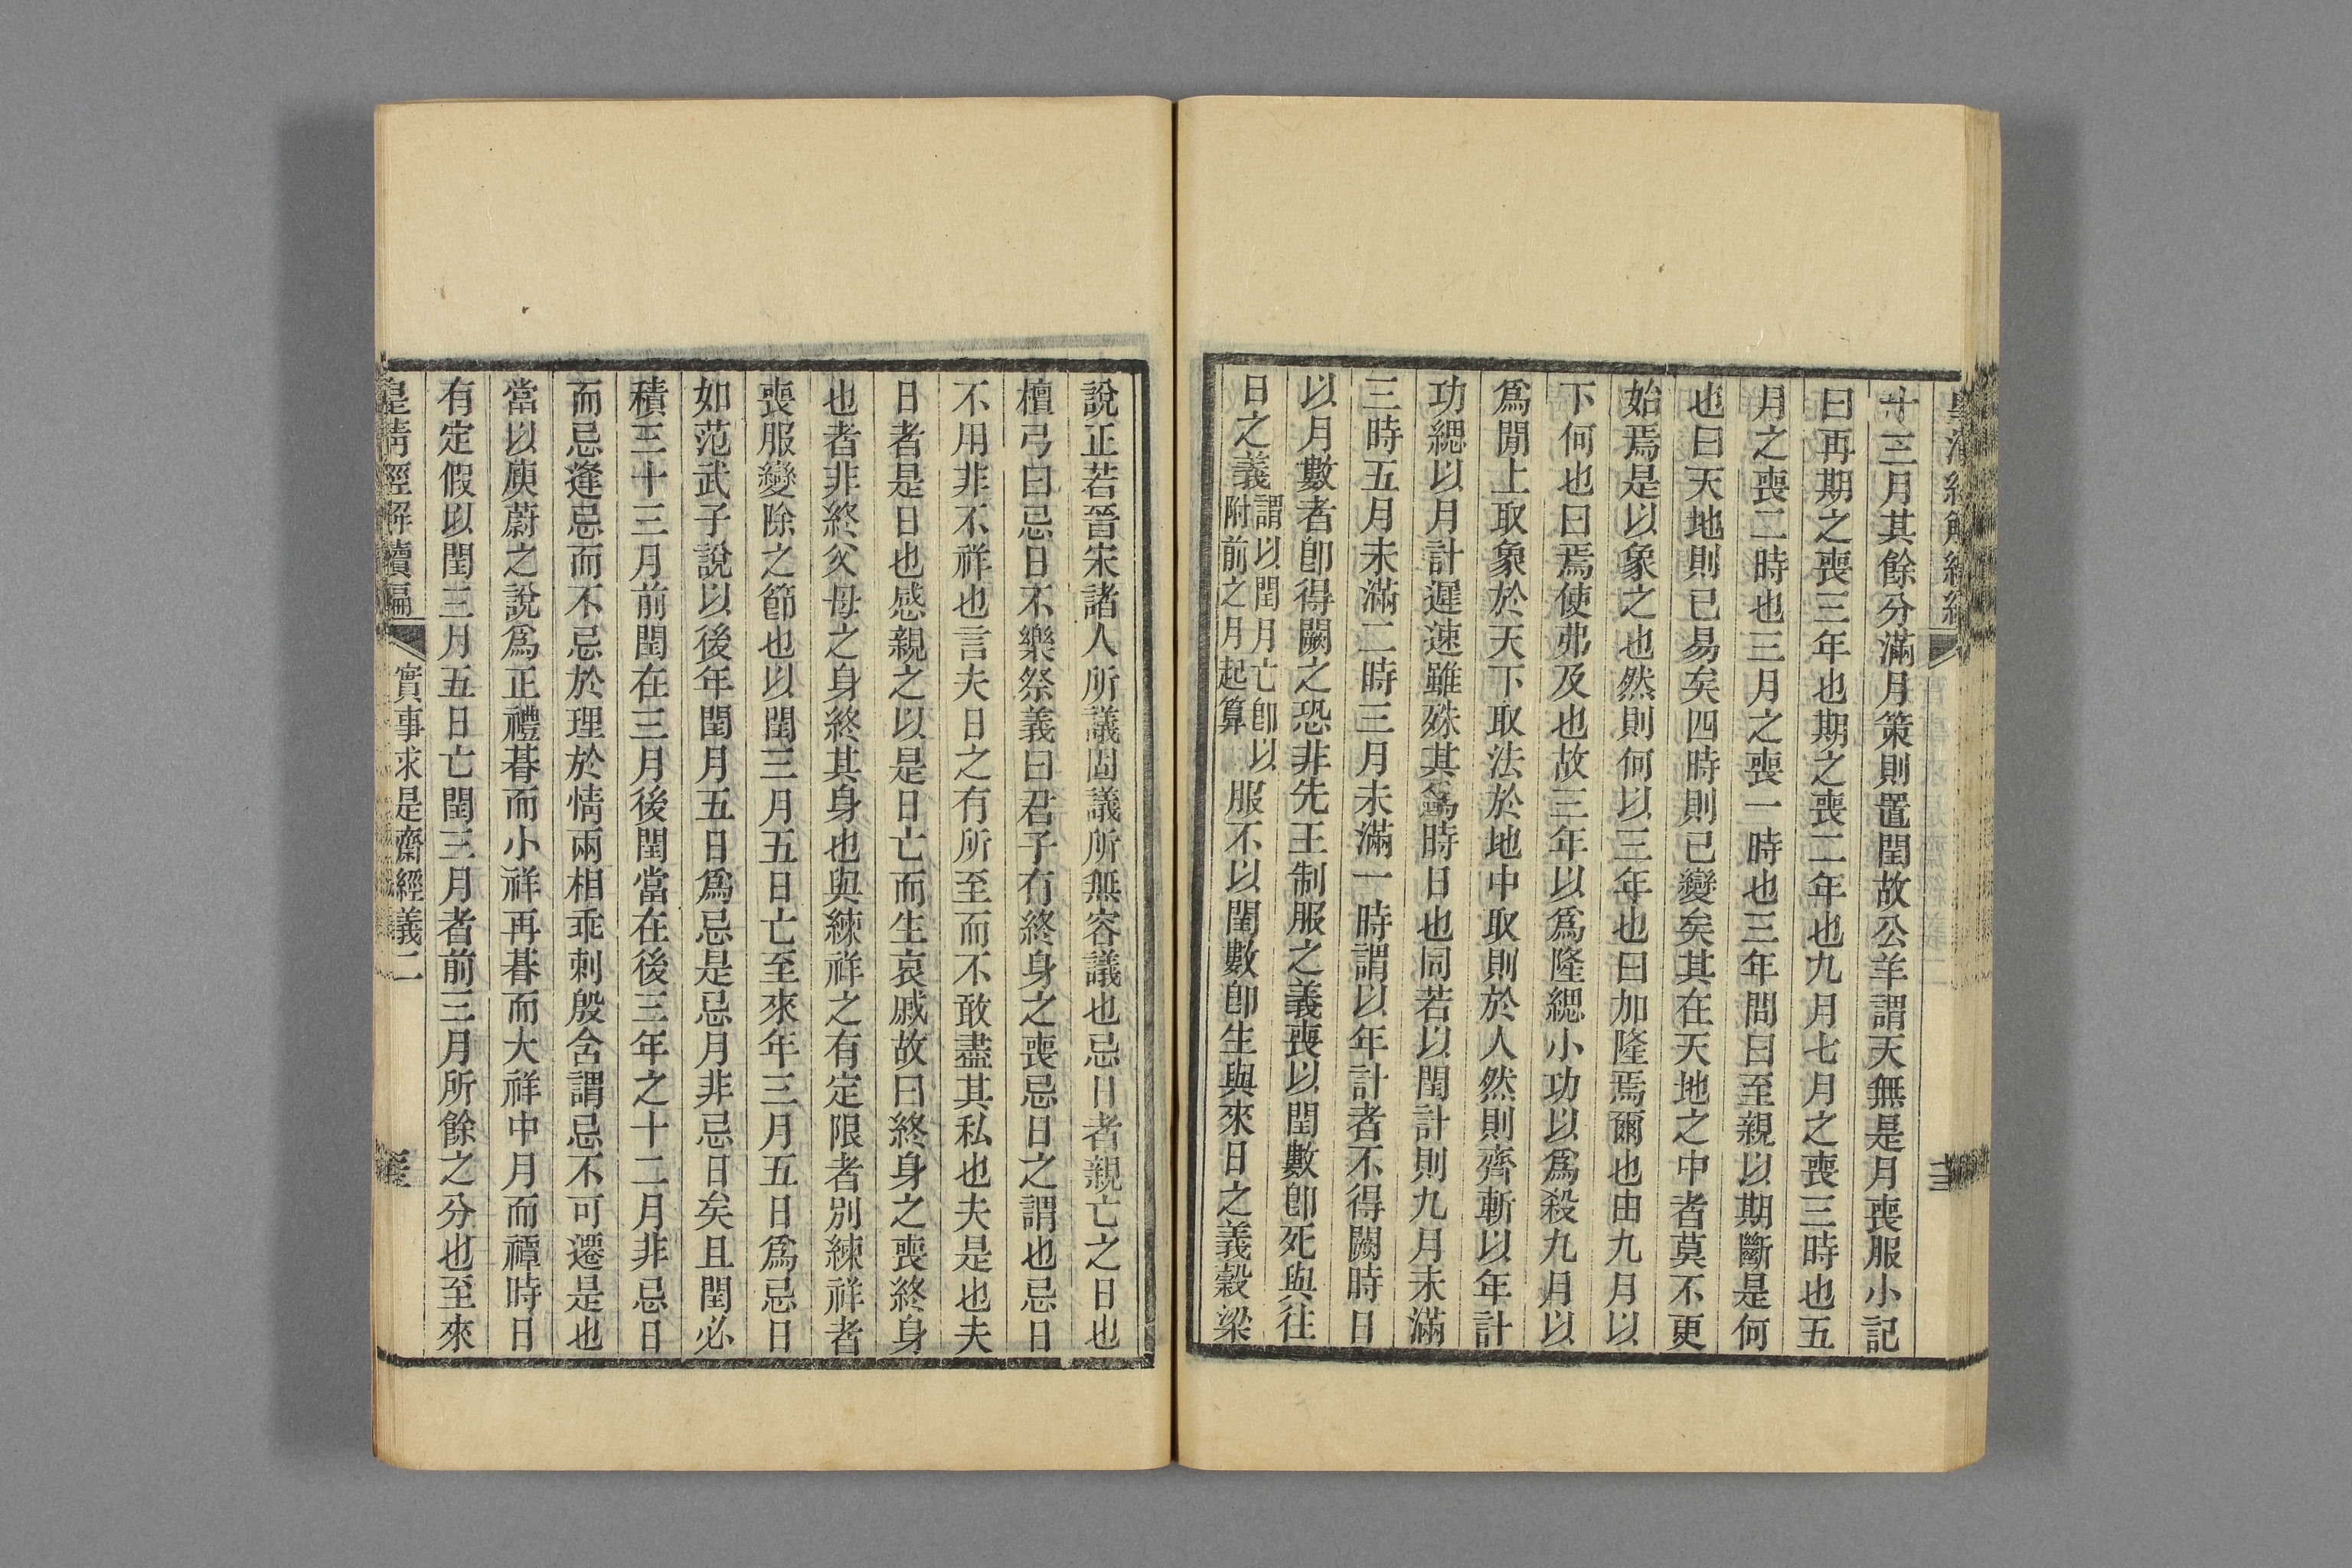 十三月其餘分滿月策則置閏故公羊謂天無是月喪服小記
曰再期之喪三年也期之喪二年也九月七月之喪三時也五
月之喪二時也三月之喪一時也三年問曰至親以期斷是何
也曰天地則已易矣四時則已變矣其在天地之中者莫不更
始焉是以象之也然則何以三年也曰加隆焉爾也由九月以
下何也曰焉使弗及也故三年以爲隆緦小功以爲殺九月以
爲閒上取象於天下取法於地中取則於人然則齊斬以年計
功緦以月計遲速雖殊其爲時日也同若以閏計則九月未滿
三時五月未滿二時三月未滿一時謂以年計者不得闕時日
以月數者卽得闕之恐非先王制服之義喪以閏數卽死與往
日之義謂以閏月亡卽以附前之月起算服不以閏數卽生與來日之義穀梁
說正若晉宋諸人所議固議所無容議也忌日者親亡之日也
檀弓曰忌日不樂祭義曰君子有終身之喪忌日之謂也忌日
不用非不祥也言夫日之有所至而不敢盡其私也夫是也夫
日者是日也感親之以是日亡而生哀戚故曰終身之喪終身
也者非終父母之身終其身也與練祥之有定限者別練祥者
喪服變除之節也以閏三月五日亡至來年三月五日爲忌日
如范武子說以後年閏月五日爲忌是忌月非忌日矣且閏必
積三十三月前閏在三月後閏當在後三年之十二月非忌日
而忌逢忌而不忌於理於情兩相乖刺殷合謂忌不可遷是也
當以庾蔚之說爲正禮朞而小祥再朞而大祥中月而禫時日
有定假以閏三月五日亡閏三月者前三月所餘之分也至來
皇淸經解續編 實事求是齋經義二